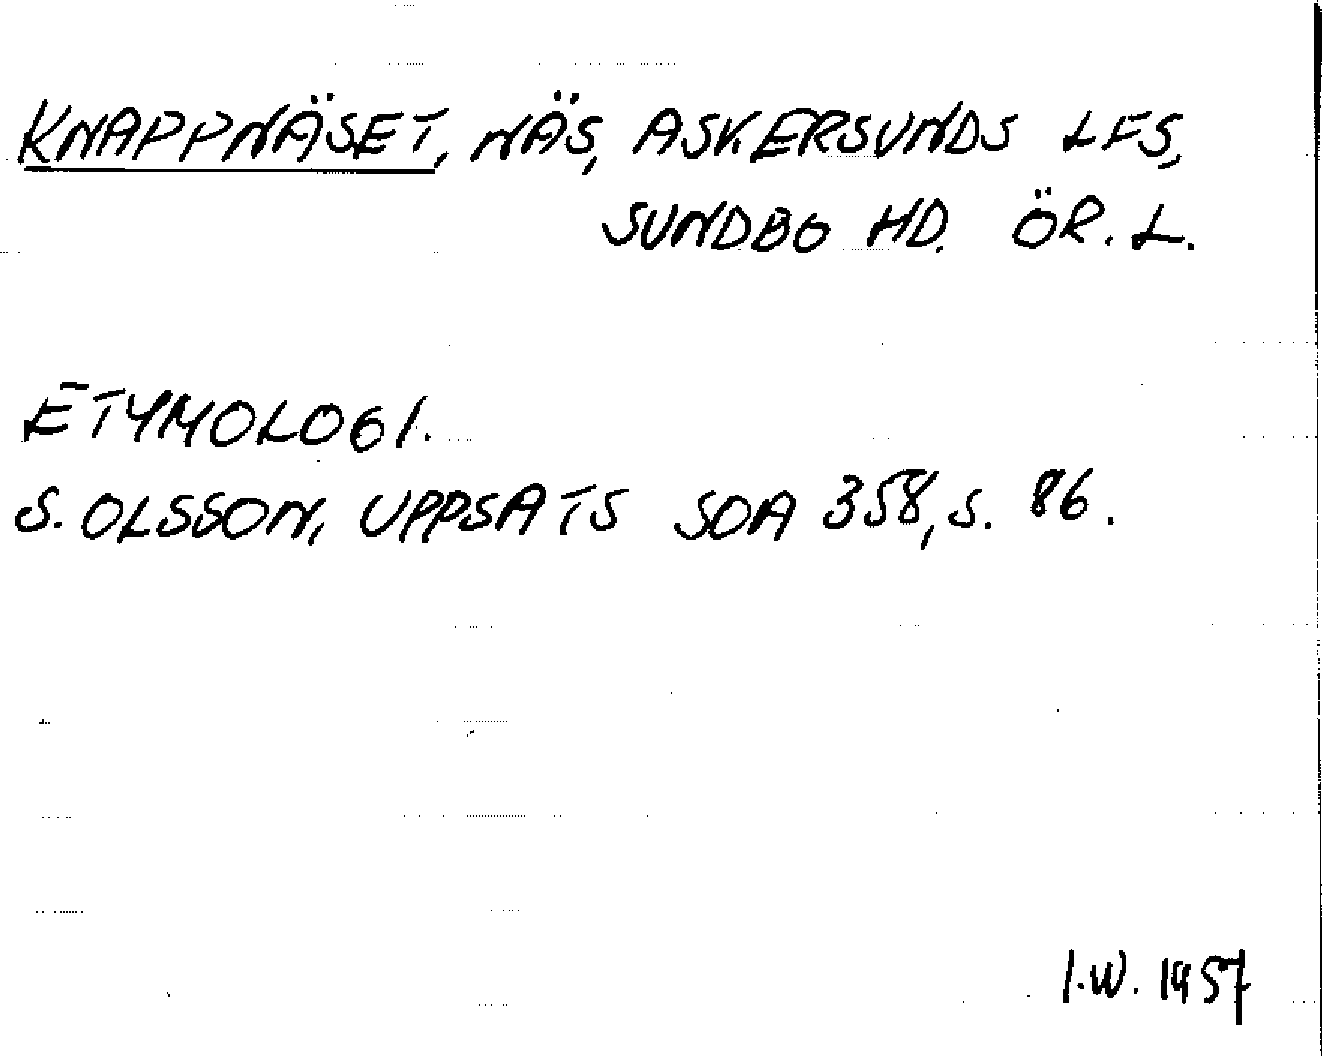 KNAPPNÄSET, NÄS, ASKERSUNDS LFS,
SUNDBO HD. ÖR. L.
ETYMOLOGI.
S. OLSSON, UPPSATS SOA 358, S. 86.
I.W. 1957